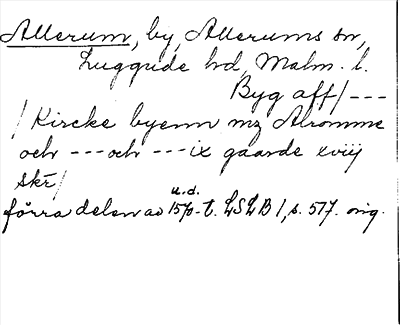 Allerum, by, Allerums sn,
Luggude hd, Malm. l.
Byg aff/---
/Kircke byenn mz Alromme
och ---och --- ix gaarde xviij
skr/
u.d.
förra delen av 1570-t. LSLB 1, s. 517. orig.